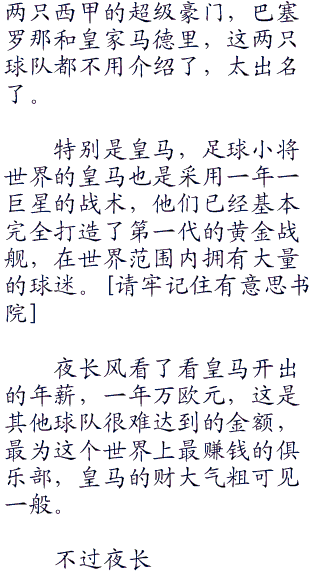 两只西甲的超级豪门，巴塞
罗那和皇家马德里，这两只
球队都不用介绍了，太出名
了。
特别是皇马，足球小将
世界的皇马也是采用一年一
巨星的战术，他们已经基本
完全打造了第一代的黄金战
舰，在世界范围内拥有大量
的球迷。[请牢记住有意思书
院]
夜长风看了看皇马开出
的年薪，一年万欧元，这是
其他球队很难达到的金额，
最为这个世界上最赚钱的俱
乐部，皇马的财大气粗可见
一般。
不过夜长